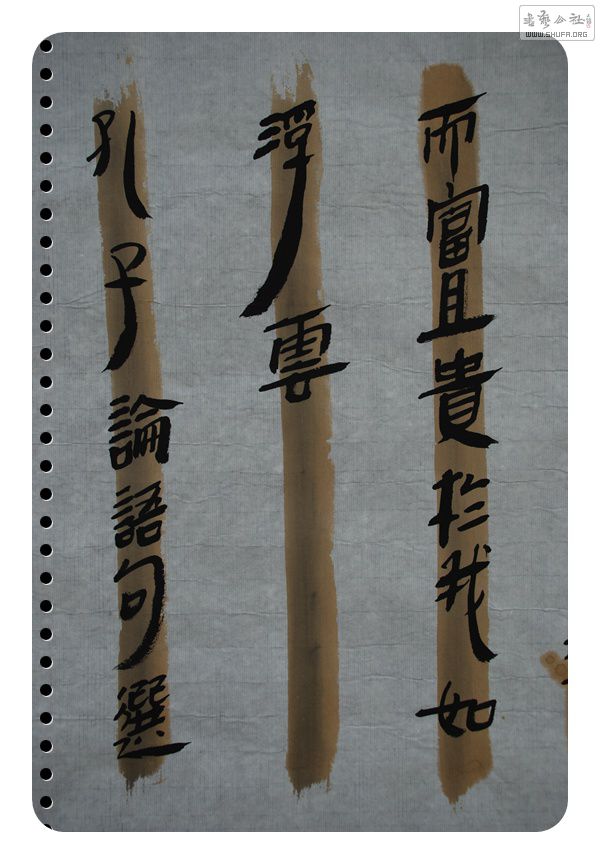 而富且貴於我如
浮雲
孔子論語句選
WWW.SHUFA.ORG